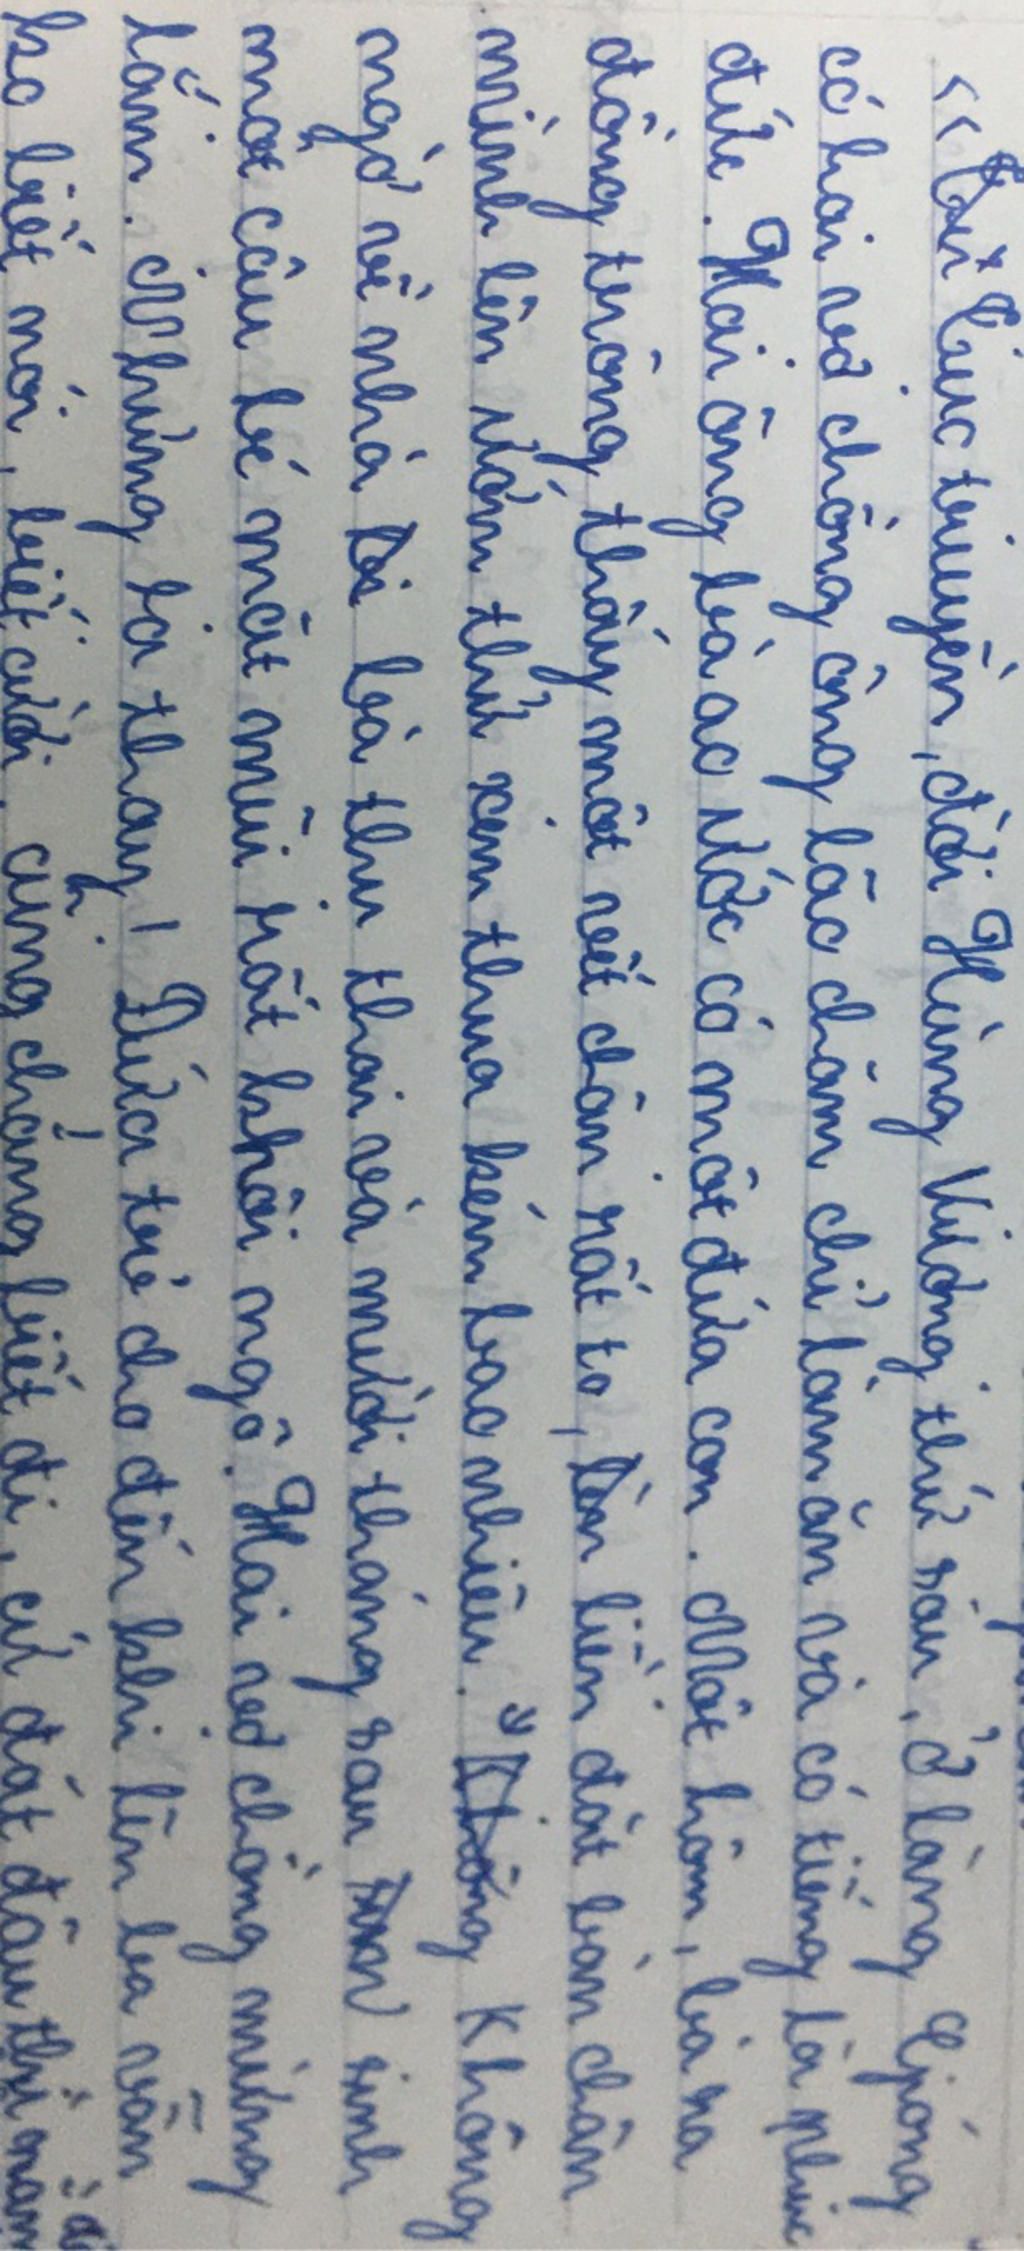 << Tục truyền, đời Hùng Vương thứ sáu, ở làng Gióng
có hai vợ chồng ông lão chăm chỉ làm ăn và có tiếng là phúc
đức. Hai ông bà ao ước có một đứa con. Một hôm, bà ra
đồng trông thấy một vết chân rất to, liền đặt bàn chân
mình lên ướm thử xem thua kém bao nhiêu. Không
ngờ về nhà bà thụ thai và mười tháng sau sinh
một cậu bé mặt mũi rất khôi ngô. Hai vợ chồng mừng
lắm. Nhưng lạ thay! Đứa trẻ cho đến khi lên ba vẫn
ko biết nói, biết cười, cũng chẳng biết đi, cứ đặt đâu thì nằm